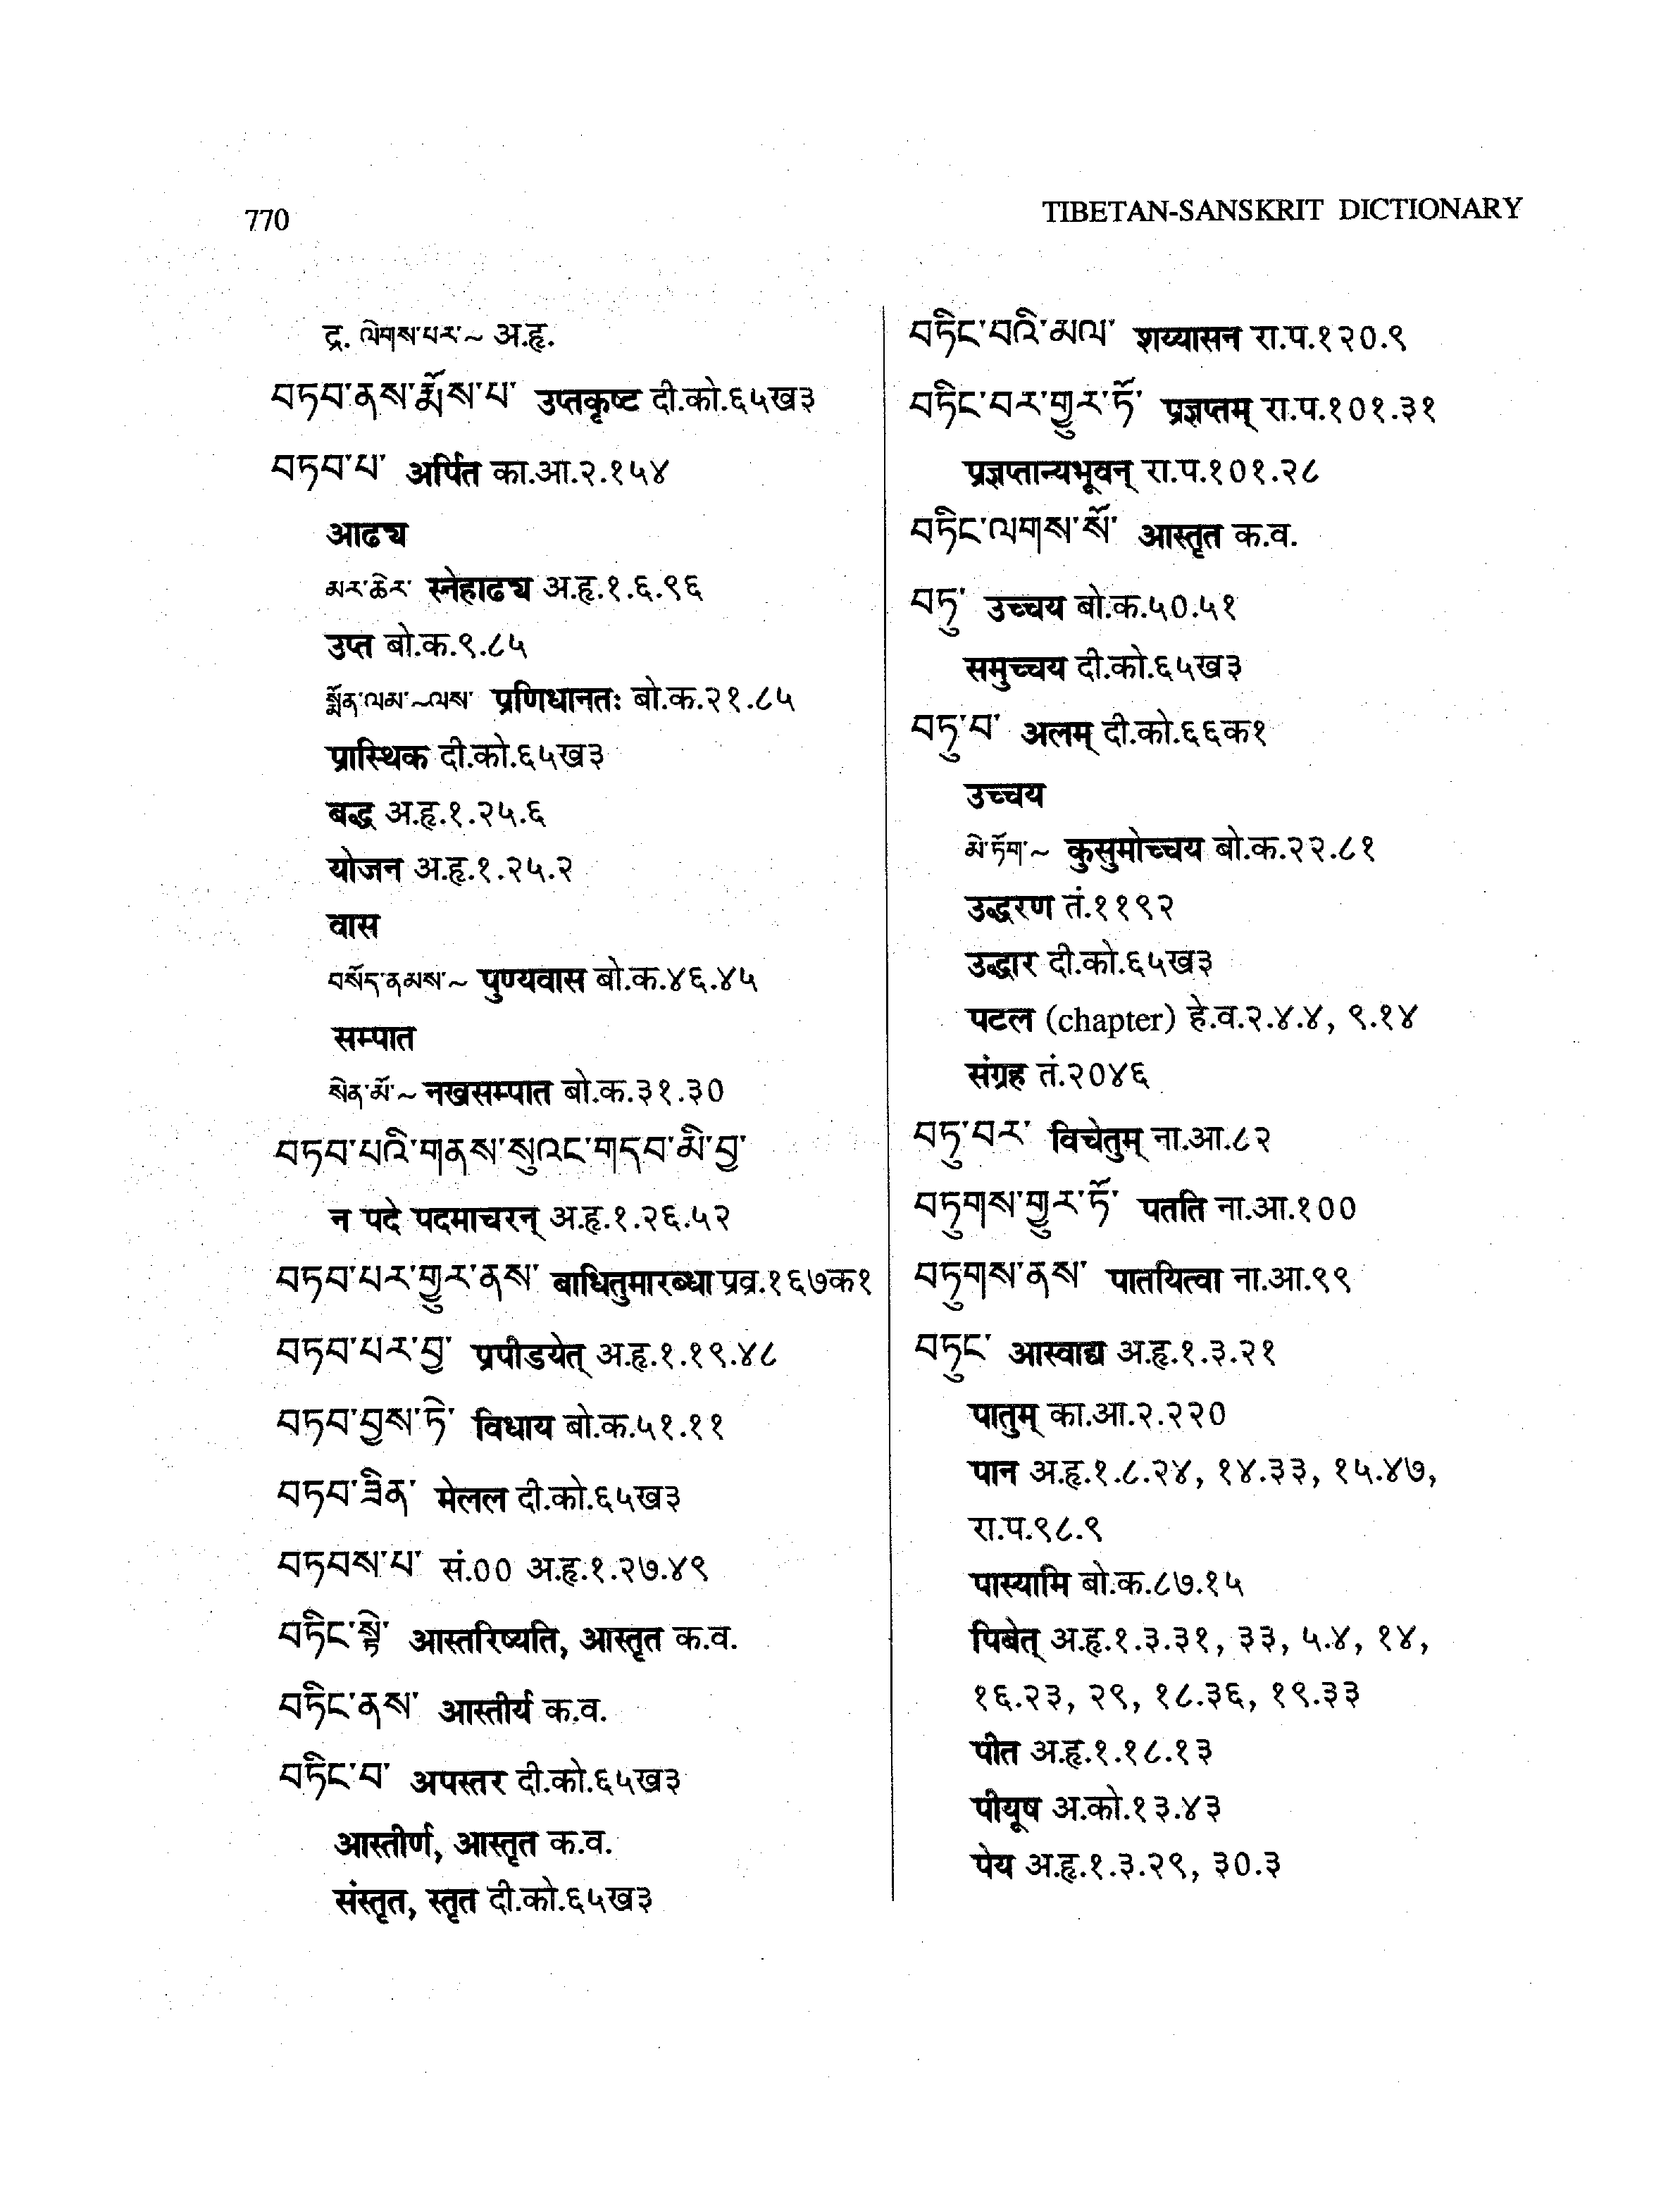 770
TIBETAN-SANSKRIT DICTIONARY
द्र. ལེགས་པར་~ अ.हृ.
བཏབ་ནས་རྨོས་པ་ उप्तकृष्ट दी.को.६५ख३
བཏབ་པ་ अर्पित का.आ.२.१५४
आढ्य
མར་ཆེར་ स्नेहाढ्य अ.हृ.१.६.९६
उप्त बो.क.९.८५
སྨོན་ལམ་~ལས་ प्रणिधानतः बो.क.२१.८५
प्रास्थिक दी.को.६५ख३
बद्ध अ.हृ.१.२५.६
योजन अ.हृ.१.२५.२
वास
བསོད་ནམས་~ पुण्यवास बो.क.४६.४५
सम्पात
སེན་མོ་~ नखसम्पात बो.क.३१.३०
བཏབ་པའི་གནས་སུའང་གདབ་མི་བྱ་
न पदे पदमाचरन् अ.हृ.१.२६.५२
བཏབ་པར་གྱུར་ནས་ बाधितुमारब्धा प्रव्र.१६७क१
བཏབ་པར་བྱ་ प्रपीडयेत् अ.हृ.१.१९.४८
བཏབ་བྱས་ཏེ་ विधाय बो.क.५१.११
བཏབ་ཟིན་ मेलल दी.को.६५ख३
བཏབས་པ་ सं.०० अ.हृ.१.२७.४९
བཏིང་སྟེ་ आस्तरिष्यति, आस्तृत क.व.
བཏིང་ནས་ आस्तीर्य क.व.
བཏིང་བ་ अपस्तर दी.को.६५ख३
आस्तीर्ण, आस्तृत क.व.
संस्तृत, स्तृत दी.को.६५ख३
བཏིང་བའི་མལ་ शय्यासन रा.प.१२०.९
བཏིང་བར་གྱུར་ཏོ་ प्रज्ञप्तम् रा.प.१०१.३१
प्रज्ञप्तान्यभूवन् रा.प.१०१.२८
བཏིང་ལགས་སོ་ आस्तृत क.व.
བཏུ་ उच्चय बो.क.५०.५१
समुच्चय दी.को.६५ख३
བཏུ་བ་ अलम् दी.को.६६क१
उच्चय
མེ་ཏོག་~ कुसुमोच्चय बो.क.२२.८१
उद्धरण तं.११९२
उद्धार दी.को.६५ख३
पटल (chapter) हे.व.२.४.४, ९.१४
संग्रह तं.२०४६
བཏུ་བར་ विचेतुम् ना.आ.८२
བཏུགས་གྱུར་ཏོ་ पतति ना.आ.१००
བཏུགས་ནས་ पातयित्वा ना.आ.९९
བཏུང་ आस्वाद्य अ.हृ.१.३.२१
पातुम् का.आ.२.२२०
पान अ.हृ.१.८.२४, १४.३३, १५.४७,
रा.प.९८.९
पास्यामि बो.क.८७.१५
पिबेत् अ.हृ.१.३.३१, ३३, ५.४, १४,
१६.२३, २९, १८.३६, १९.३३
पीत अ.हृ.१.१८.१३
पीयूष अ.को.१३.४३
पेय अ.हृ.१.३.२९, ३०.३